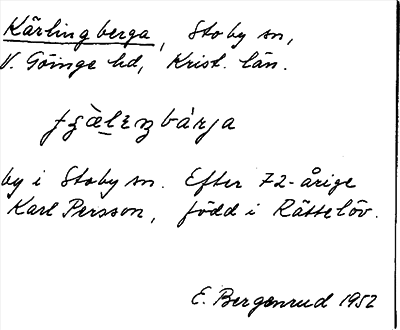 Kärlingberga, Stoby sn,
V. Göinge hd, Krist. län.
by i Stoby sn. Efter 72-årige
Karl Persson, född i Rättelöv.
E. Bergenrud 1952